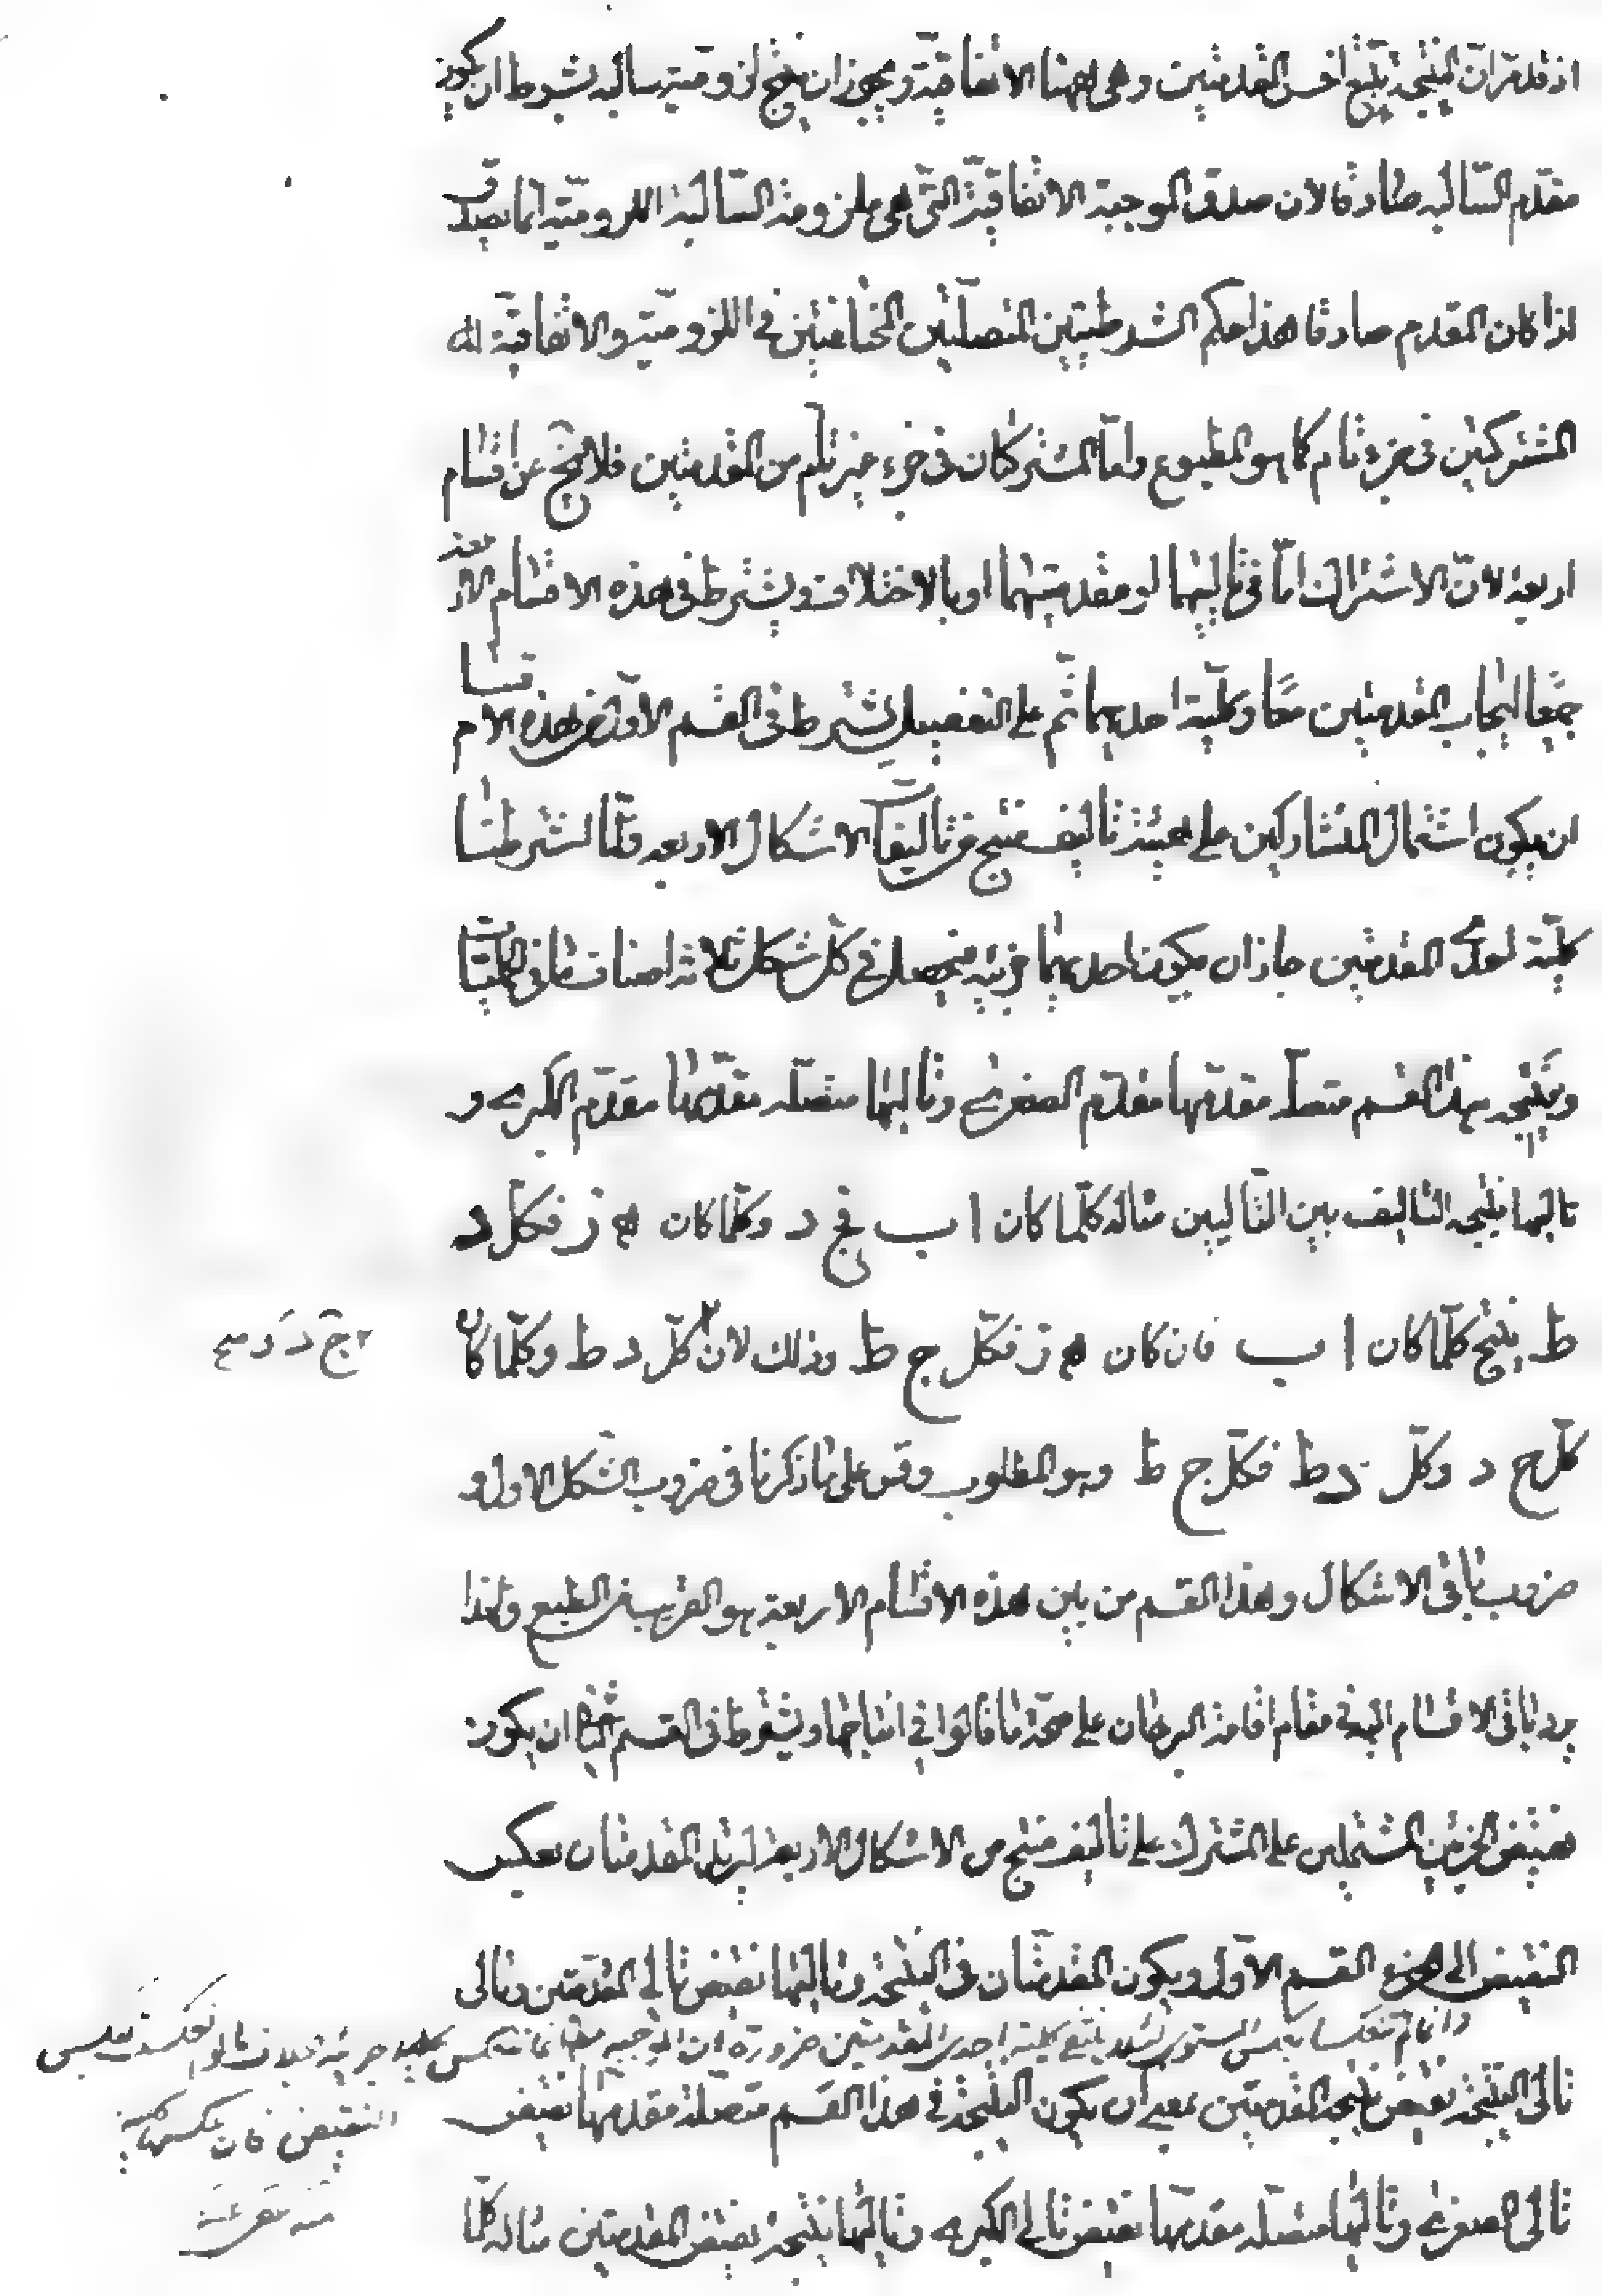 اذ قد مرّ ان النتيجة تتبع اخس المقدمتين وهى ههنا الاتفاقية ويجوز ان ينتج لزومية سالبة بشرط ان يكون
مقدّم السّالبه صادقا لان صدق الموجبة الاتفاقيّة التّى هى ملزومة السّالبة اللزوميّة انما يصدق
اذا كان المقدم صادقا هذا حكم الشرطيتين المتصلتين المختلفتين فى اللزوميّة والاتفاقيّة
المشتركتين فى جزء تام كما هو المطبوع وامّا المشتركتان فى جزء غير تام من المقدمتين فلا يخ عن اقسام
اربعة لانّ الاشتراك امّا فى تاليهما او مقدميهما او بالاختلاف ويشترط فى هذه الاقسام الاربعة
جميعا ايجاب المقدمتين معًا وكليّة احديهما ثم على التفصيل يشترط فى القسم الاوّل من هذه الاقسام
ان يكون اشتمال المتشاركين على هيئة تاليف منتج من تاليفات الاشكال الاربعه ولمّا لشرطنا
كليّة احدى المقدمتين جاز ان يكون احديهما جزئيه فيحصل فى كلّ شكل ثلاثة اصناف ما فى الكليّتا
ونتيجه هذا القسم متصلة مقدّمها مقدّم الصغرى وتاليها متصله مقدّمها مقدّم الكبرى و
تاليها نتيجه التاليف بين التّاليين مثاله كلّما كان ا ب فج د وكلّما كان ه ز فكلّ د
ط ينتج كلّما كان ا ب فان كان ه ز فكلّ ج ط وذلك لان كلّ د ط وكلّما كان
ج د د صح
كلّ ج د وكلّ د ط فكلّ ج ط وهو المطلوب وقس على ما ذكرنا فى ضروب الشكل الاول و
ضروب باقى الاشكال وهذا القسم من بين هذه الاقسام الاربعة هو القريب من الطبع ولهذا
يرد باقى الاقسام اليه فى مقام اقامة البرهان على صحّة ما قالوا فى انتاجها ويشترط فى القسم الثانى ان يكون
نقيض الجزئين المشتملين على المشترك على تاليف منتج من الاشكال الاربعة ليرتد المقدمتان بعكس
النقيض الى القسم الاوّل ويكون المقدمتان فى النتيجة وتاليها نقيض تالى المقدمتين وتالى
وانما لم تنعكسا بعكس المستوى احدى المقدمتين ضرورة ان الموجبه جزئية بخلاف
تالى النتيجة نقيض نتيجة المقدمتين بمعنى ان يكون النتيجة فى هذا القسم متصلة مقدمها نقيض
النقيض فان عكسها كلية
تالى الصغرى وتاليها متصله مقدّمها نقيض تالى الكبرى وتاليها نتيجة نقيض المقدمتين مثاله كلّما
منه